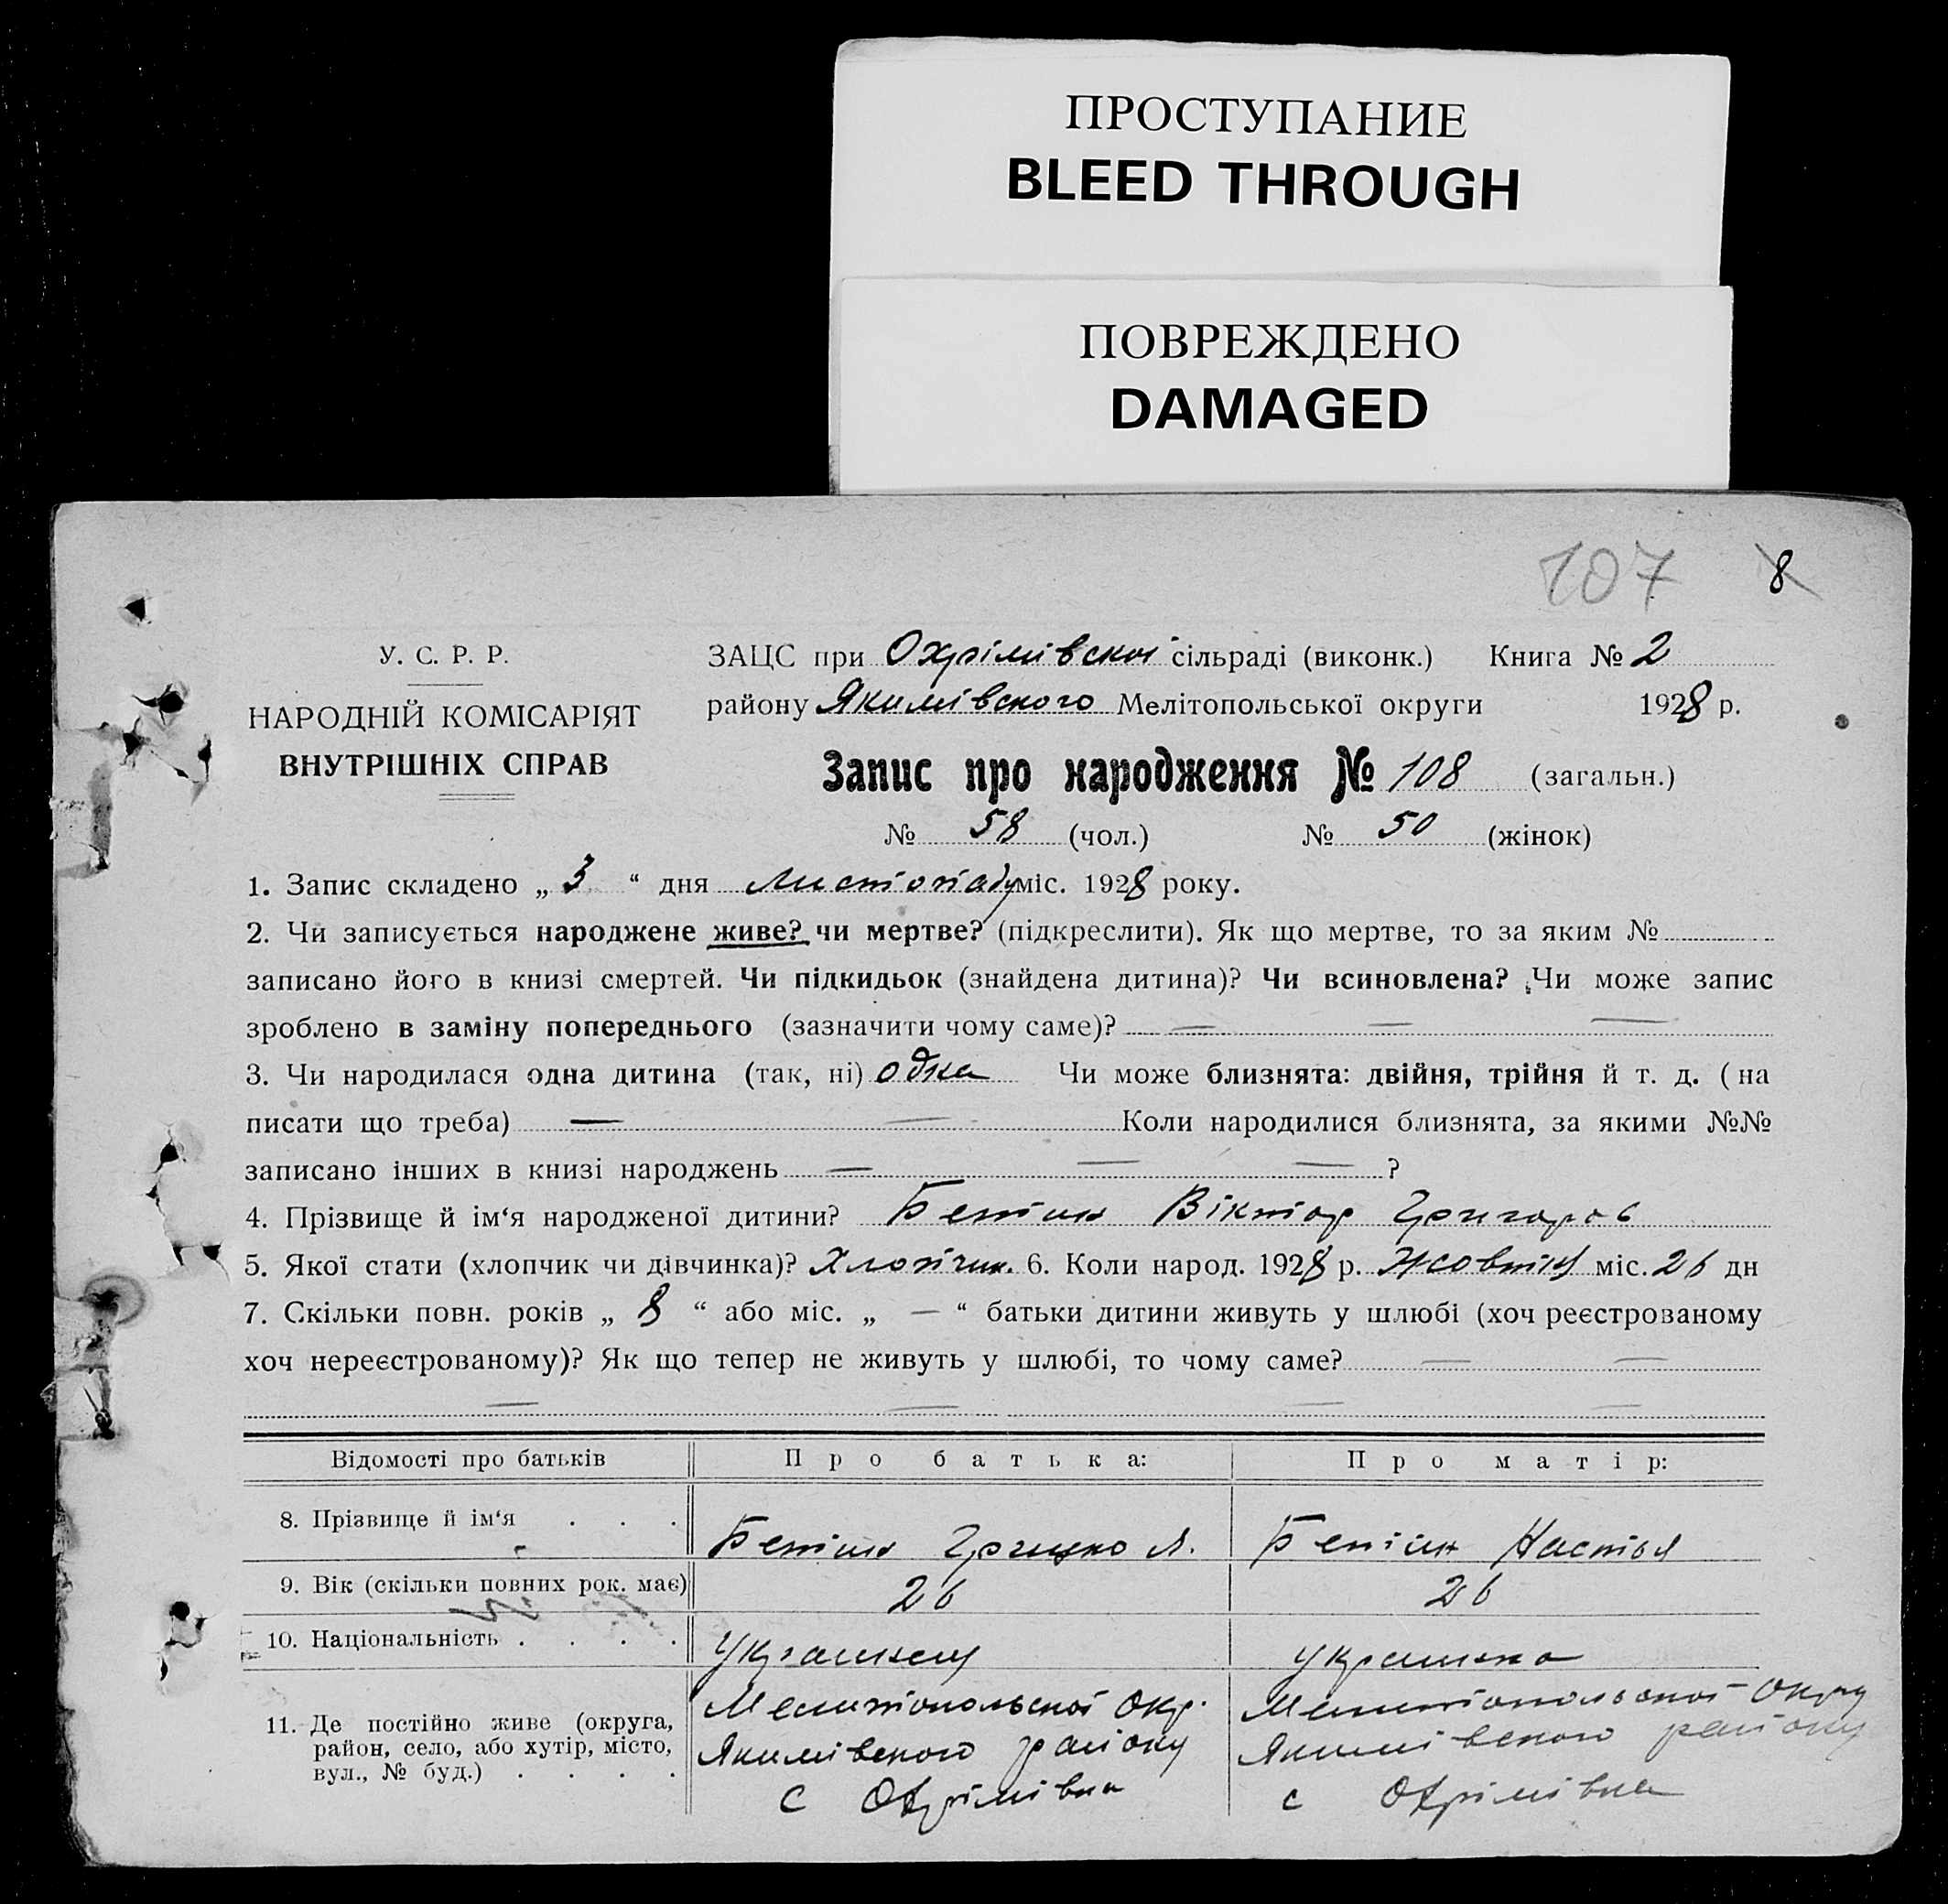 ПРОСТУПАНИЕ
BLEED THROUGH
ПОВРЕЖДЕНО
DAMAGED
107 8
У. С. Р. Р.
НАРОДНІЙ КОМІСАРІЯТ
ВНУТРІШНІХ СПРАВ
ЗАЦС при Охрімівској сільраді (виконк.) Книга № 2
району Якимівского Мелітопольської округи 1928 р.
Запис про народження № 108 (загальн.)
№ 58 (чол.) № 50 (жінок)
1. Запис складено „ 3 “ дня листопаду міс. 1928 року.
2. Чи записується народжене живе? чи мертве? (підкреслити). Як що мертве, то за яким №
записано його в книзі смертей. Чи підкидьок (знайдена дитина)? Чи всиновлена? Чи може запис
зроблено в заміну попереднього (зазначити чому саме)? — — —
3. Чи народилася одна дитина (так, ні) одна Чи може близнята: двійня, трійня й т. д. ( на
писати що треба) — — Коли народилися близнята, за якими №№
записано інших в книзі народжень — — — ?
4. Прізвище й ім‘я народженої дитини? Віктор
5. Якої стати (хлопчик чи дівчинка)? Хлопчик. 6. Коли народ. 1928 р. жовтня міс. 26 дн
7. Скільки повн. років „ 8 “ або міс. „ — “ батьки дитини живуть у шлюбі (хоч реєстрованому
хоч нереєстрованому)? Як що тепер не живуть у шлюбі, то чому саме? — —
— — — —
Відомості про батьків Про батька: Про матір:
8. Прізвище й ім‘я . . . Настья
9. Вік (скільки повних рок. має) 26 26
10. Національність . . . . Українец українка
11. Де постійно живе (округа,
район, село, або хутір, місто,
вул., № буд.) . . . .
Мелитопольскої Окр.
Якимівского району
с Охрімівка
Мелитопольскої Округу
Якимівского району
с Охрімівка